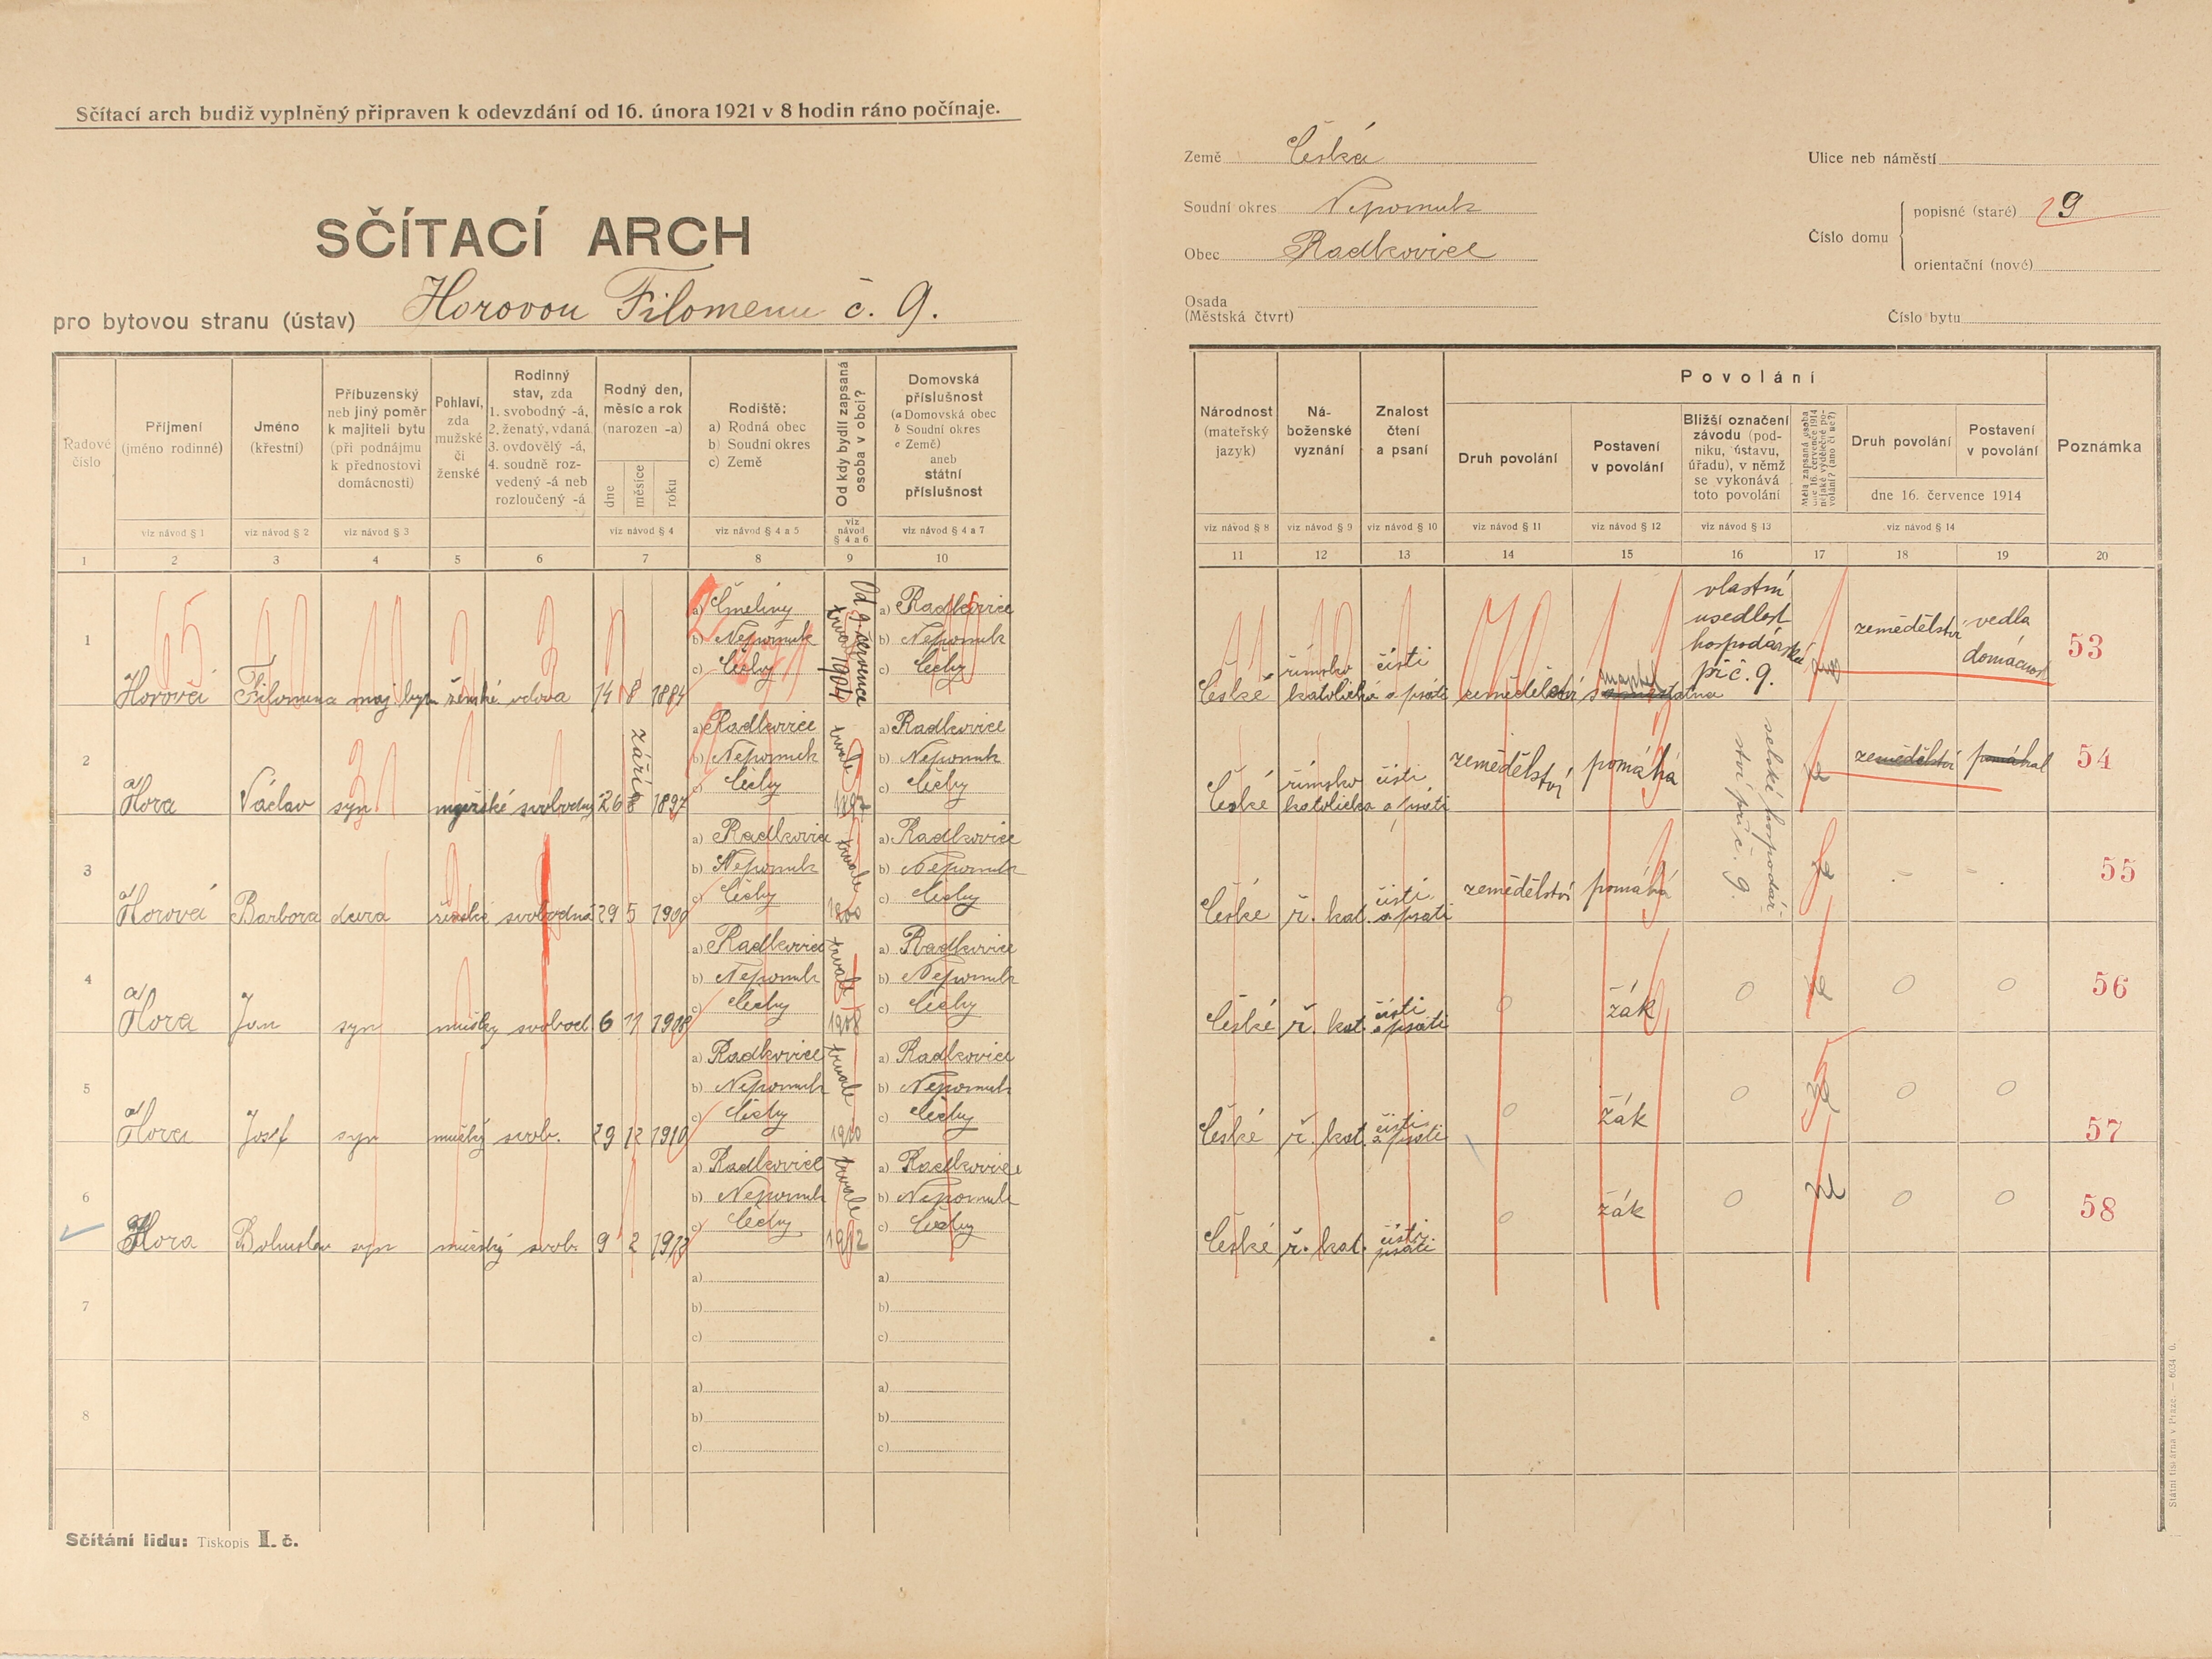 Sčítací arch budiž vyplněný připraven k odevzdání od 16. února 1921 v 8 hodin ráno počínaje.
SČÍTACÍ ARCH
pro bytovou stranu (ústav) Horovou Filomenu č. 9.
Země Česká
Soudní okres Nepomuk
Obec Radkovice
Osada
(Městská čtvrť)
Ulice neb náměstí
Číslo domu
popisné (staré) 9
orientační (nové)
Číslo bytu
Řadové číslo
Příjmení (jméno rodinné)
Jméno (křestní)
Příbuzenský neb jiný poměr k majiteli bytu (při podnájmu k přednostovi domácnosti)
Pohlaví, zda mužské či ženské
Rodinný stav, zda 1. svobodný -á, 2. ženatý, vdaná 3. ovdovělý -á, 4. soudně rozvedený -á neb rozloučený -á
Rodný den, měsíc a rok (narozen -a)
dne měsíce roku
Rodiště:
a) Rodná obec
b) Soudní okres
c) Země
Od kdy bydlí zapsaná osoba v obci?
Domovská příslušnost
(a Domovská obec
b Soudní okres
c Země)
aneb státní příslušnost
viz návod § 1 viz návod § 2 viz návod § 3 viz návod § 4 viz návod § 4 a 5 viz návod § 4 a 6 viz návod § 4 a 7
1 2 3 4 5 6 7 8 9 10
Národnost (mateřský jazyk)
Náboženské vyznání
Znalost čtení a psaní
Povolání
Druh povolání
Postavení v povolání
Bližší označení závodu (podniku, ústavu, úřadu), v němž se vykonává toto povolání
Měla zapsaná osoba dne 16. července 1914 nějaké výdělečné povolání? (ano či ne?)
Druh povolání
Postavení v povolání
dne 16. července 1914
Poznámka
viz návod § 8 viz návod § 9 viz návod § 10 viz návod § 11 viz návod § 12 viz návod § 13 viz návod § 14
11 12 13 14 15 16 17 18 19 20
1 Horová Filomena maj. bytu ženské vdova 14 8 1884
a) Čmeliny
b) Nepomuk
c) Čechy
Od 9. července 1904
a) Radkovice
b) Nepomuk
c) Čechy
České římsko katolické čísti a psáti zemědělství
vlastní usedlost hospodářská při č. 9.
zemědělství vedla domácnost 53
2 Hora Václav syn mužské svobodný 26 září 1897
a) Radkovice
b) Nepomuk
c) Čechy
trvale 1897
a) Radkovice
b) Nepomuk
c) Čechy
České římsko katolická čísti a psáti zemědělství pomáhá
selské hospodářství při č. 9.
zemědělství pomáhal 54
3 Horová Barbora dcera ženské svobodná 29 5 1900
a) Radkovice
b) Nepomuk
c) Čechy
trvale 1900
a) Radkovice
b) Nepomuk
c) Čechy
České ř. kat. čísti a psáti zemědělství pomáhá ne - - 55
4 Hora Jan syn mužský svobod. 6 11 1908
a) Radkovice
b) Nepomuk
c) Čechy
trvale 1908
a) Radkovice
b) Nepomuk
c) Čechy
České ř. kat. čísti a psáti 0 žák 0 ne 0 0 56
5 Hora Josef syn mužský svob. 29 12 1910
a) Radkovice
b) Nepomuk
c) Čechy
trvale 1910
a) Radkovice
b) Nepomuk
c) Čechy
České ř. kat. čísti a psáti 0 žák 0 ne 0 0 57
6 Hora Bohuslav syn mužský svob. 9 2 1912
a) Radkovice
b) Nepomuk
c) Čechy
trvale 1912
a) Radkovice
b) Nepomuk
c) Čechy
České ř. kat. čísti psáti 0 žák 0 ne 0 0 58
7
a)
b)
c)
a)
b)
c)
8
a)
b)
c)
a)
b)
c)
Sčítání lidu: Tiskopis I. č.
Státní tiskárna v Praze. — 6034 0.